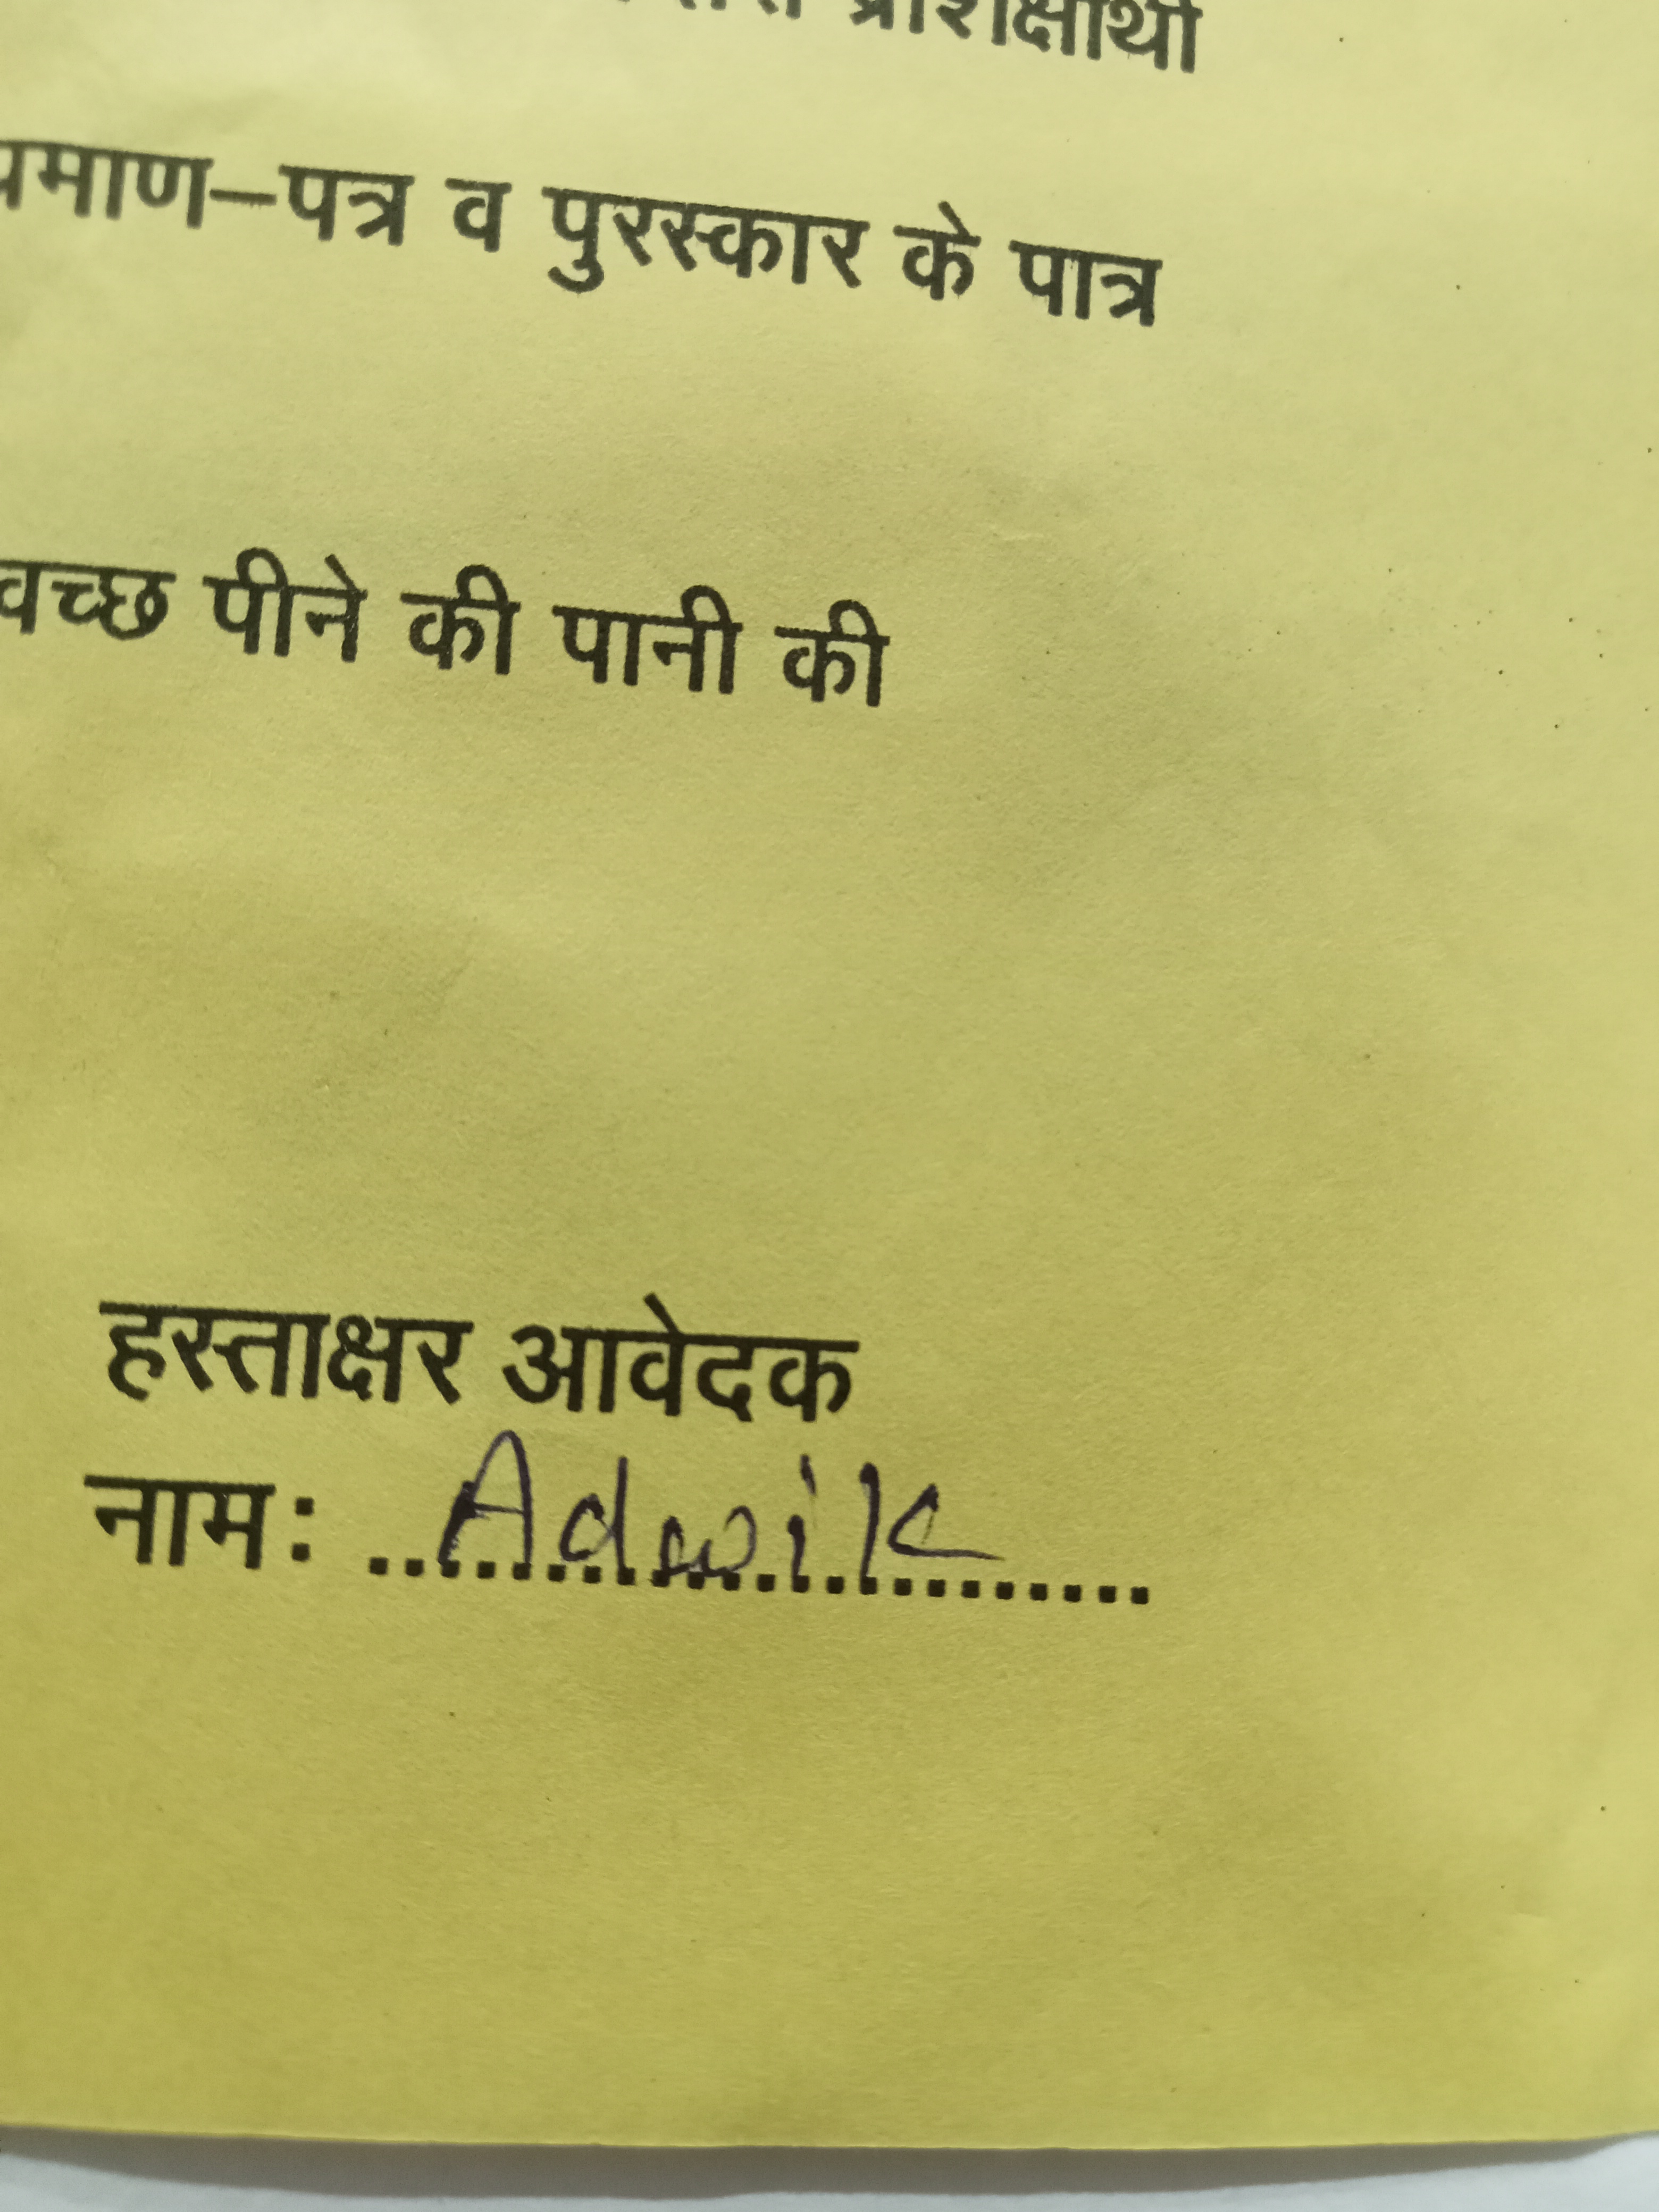 प्रशिक्षार्थी
प्रमाण–पत्र व पुरस्कार के पात्र
पीने की पानी की
हस्ताक्षर आवेदक
नामः Adwik